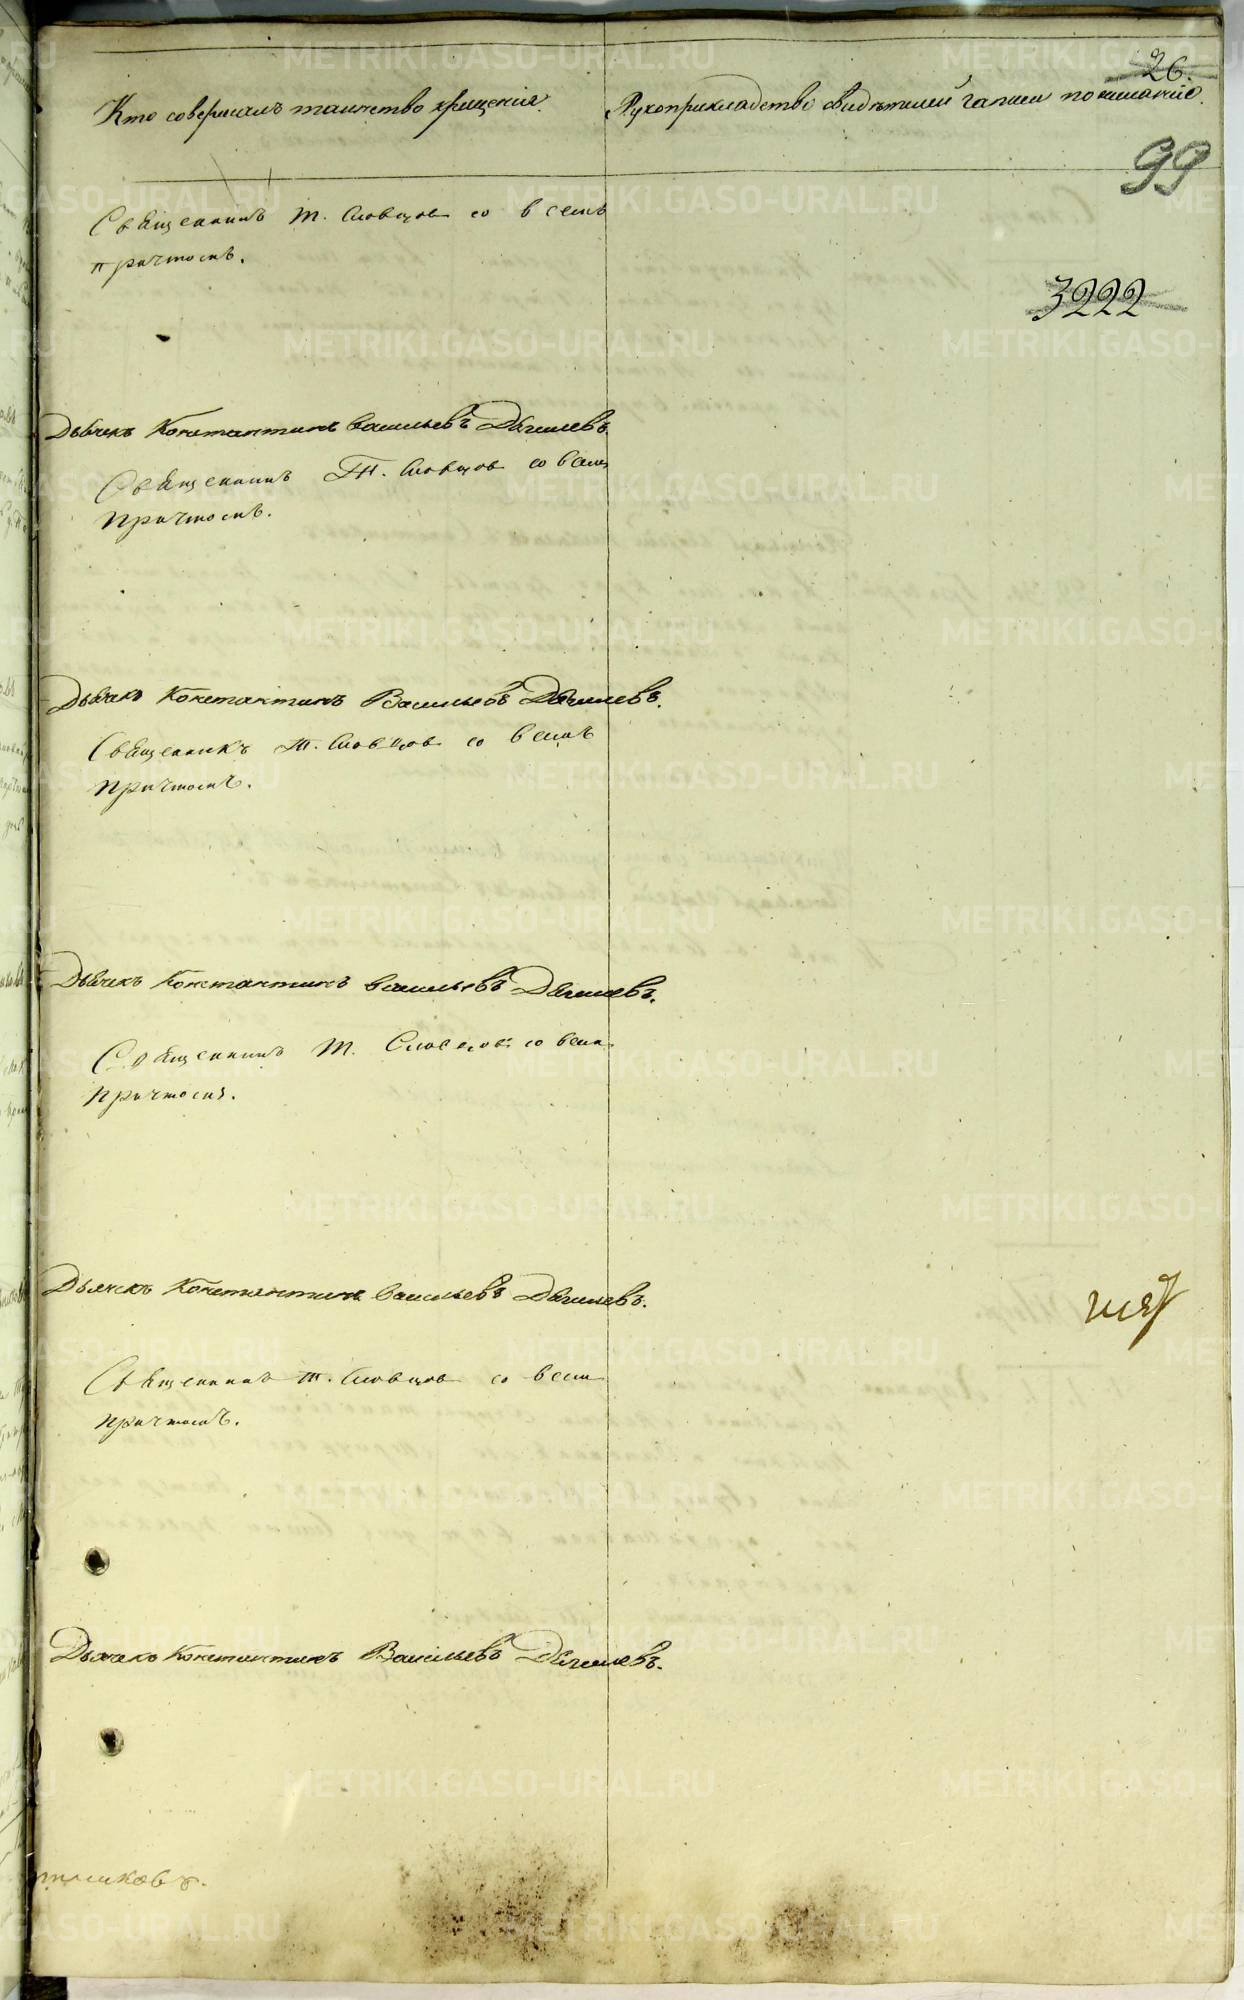 26.
Кто совершалъ таинство крещенія.
Рукоприкладство свидѣтелей записи по желанію.
99
Священникъ Т. Словцовъ со всемъ
причтомъ.
3222
Дьячекъ Константинъ Васильевъ Дягилевъ.
Священникъ Т. Словцовъ со всемъ
причтомъ.
Дьячекъ Константинъ Васильевъ Дягилевъ.
Священникъ Т. Словцовъ со всемъ
причтомъ.
Дьячекъ Константинъ Васильевъ Дягилевъ.
Священникъ Т. Словцовъ со всемъ
причтомъ.
Дьячекъ Константинъ Васильевъ Дягилевъ.
Священникъ Т. Словцовъ со всемъ
причтомъ.
Дьячекъ Константинъ Васильевъ Дягилевъ.
METRIKI.GASO-URAL.RU